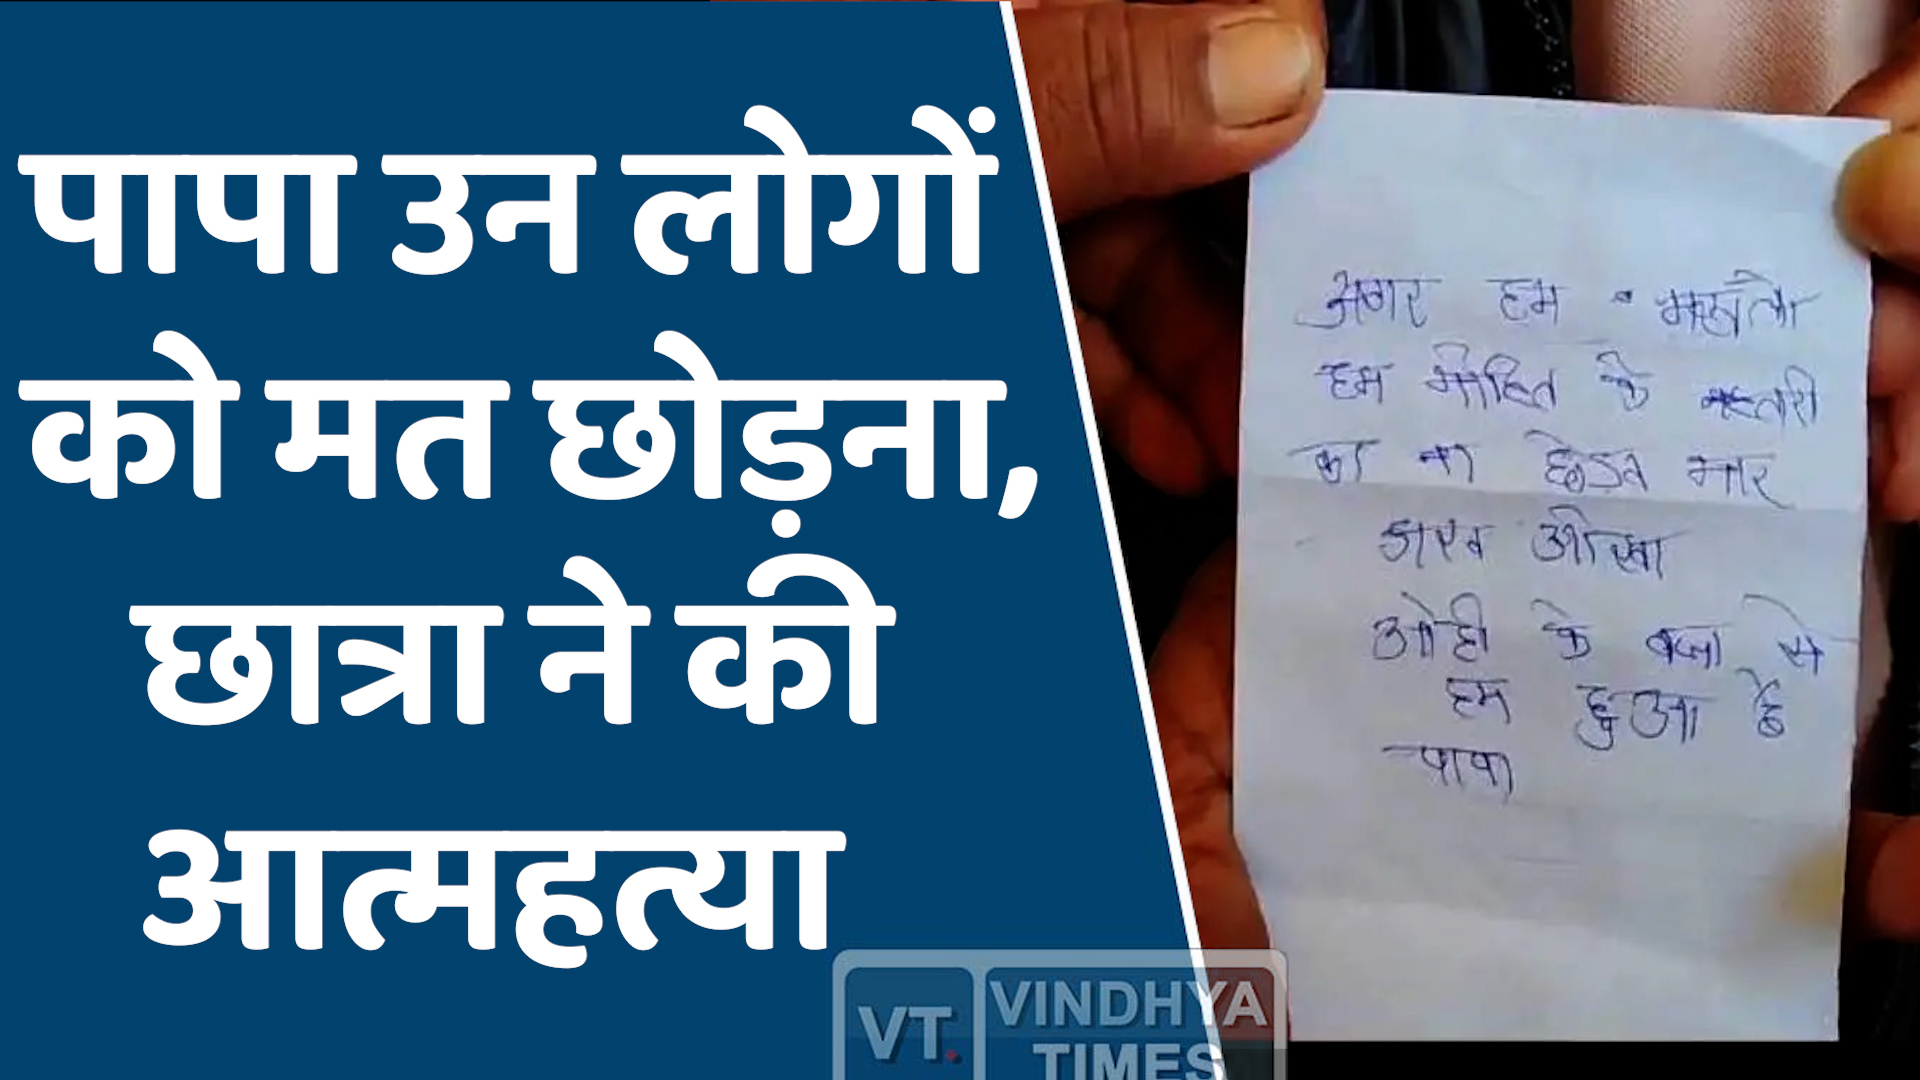 पापा उन लोगों
को मत छोड़ना,
छात्रा ने की
आत्महत्या
अगर हम
हम मोहित के
का ना छोड़ब मार
ओही के वजा से
हम हुआ है
पापा
VT.
VINDHYA
TIMES